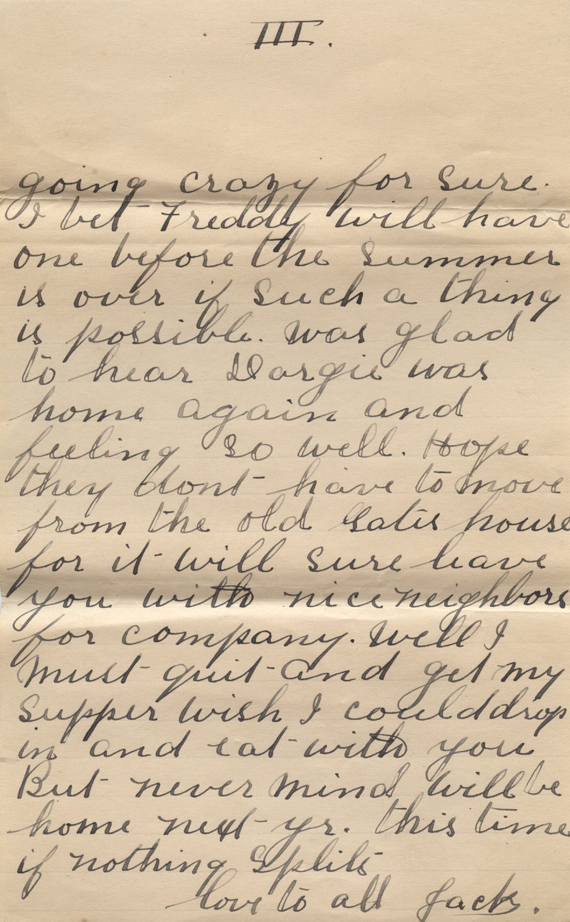 III.
going crazy for sure.
I bet Freddy will have
one before the summer
is over if such a thing
is possible. Was glad
to hear Dargie was
home again and
feeling so well. Hope
they dont have to move
from the old house
for it will sure leave
you with nice neighbors
for company. Well I
must quit and get my
supper wish I could drop
in and eat with you
But never mind I will be
home next yr. this time
if nothing splits
love to all Jack.